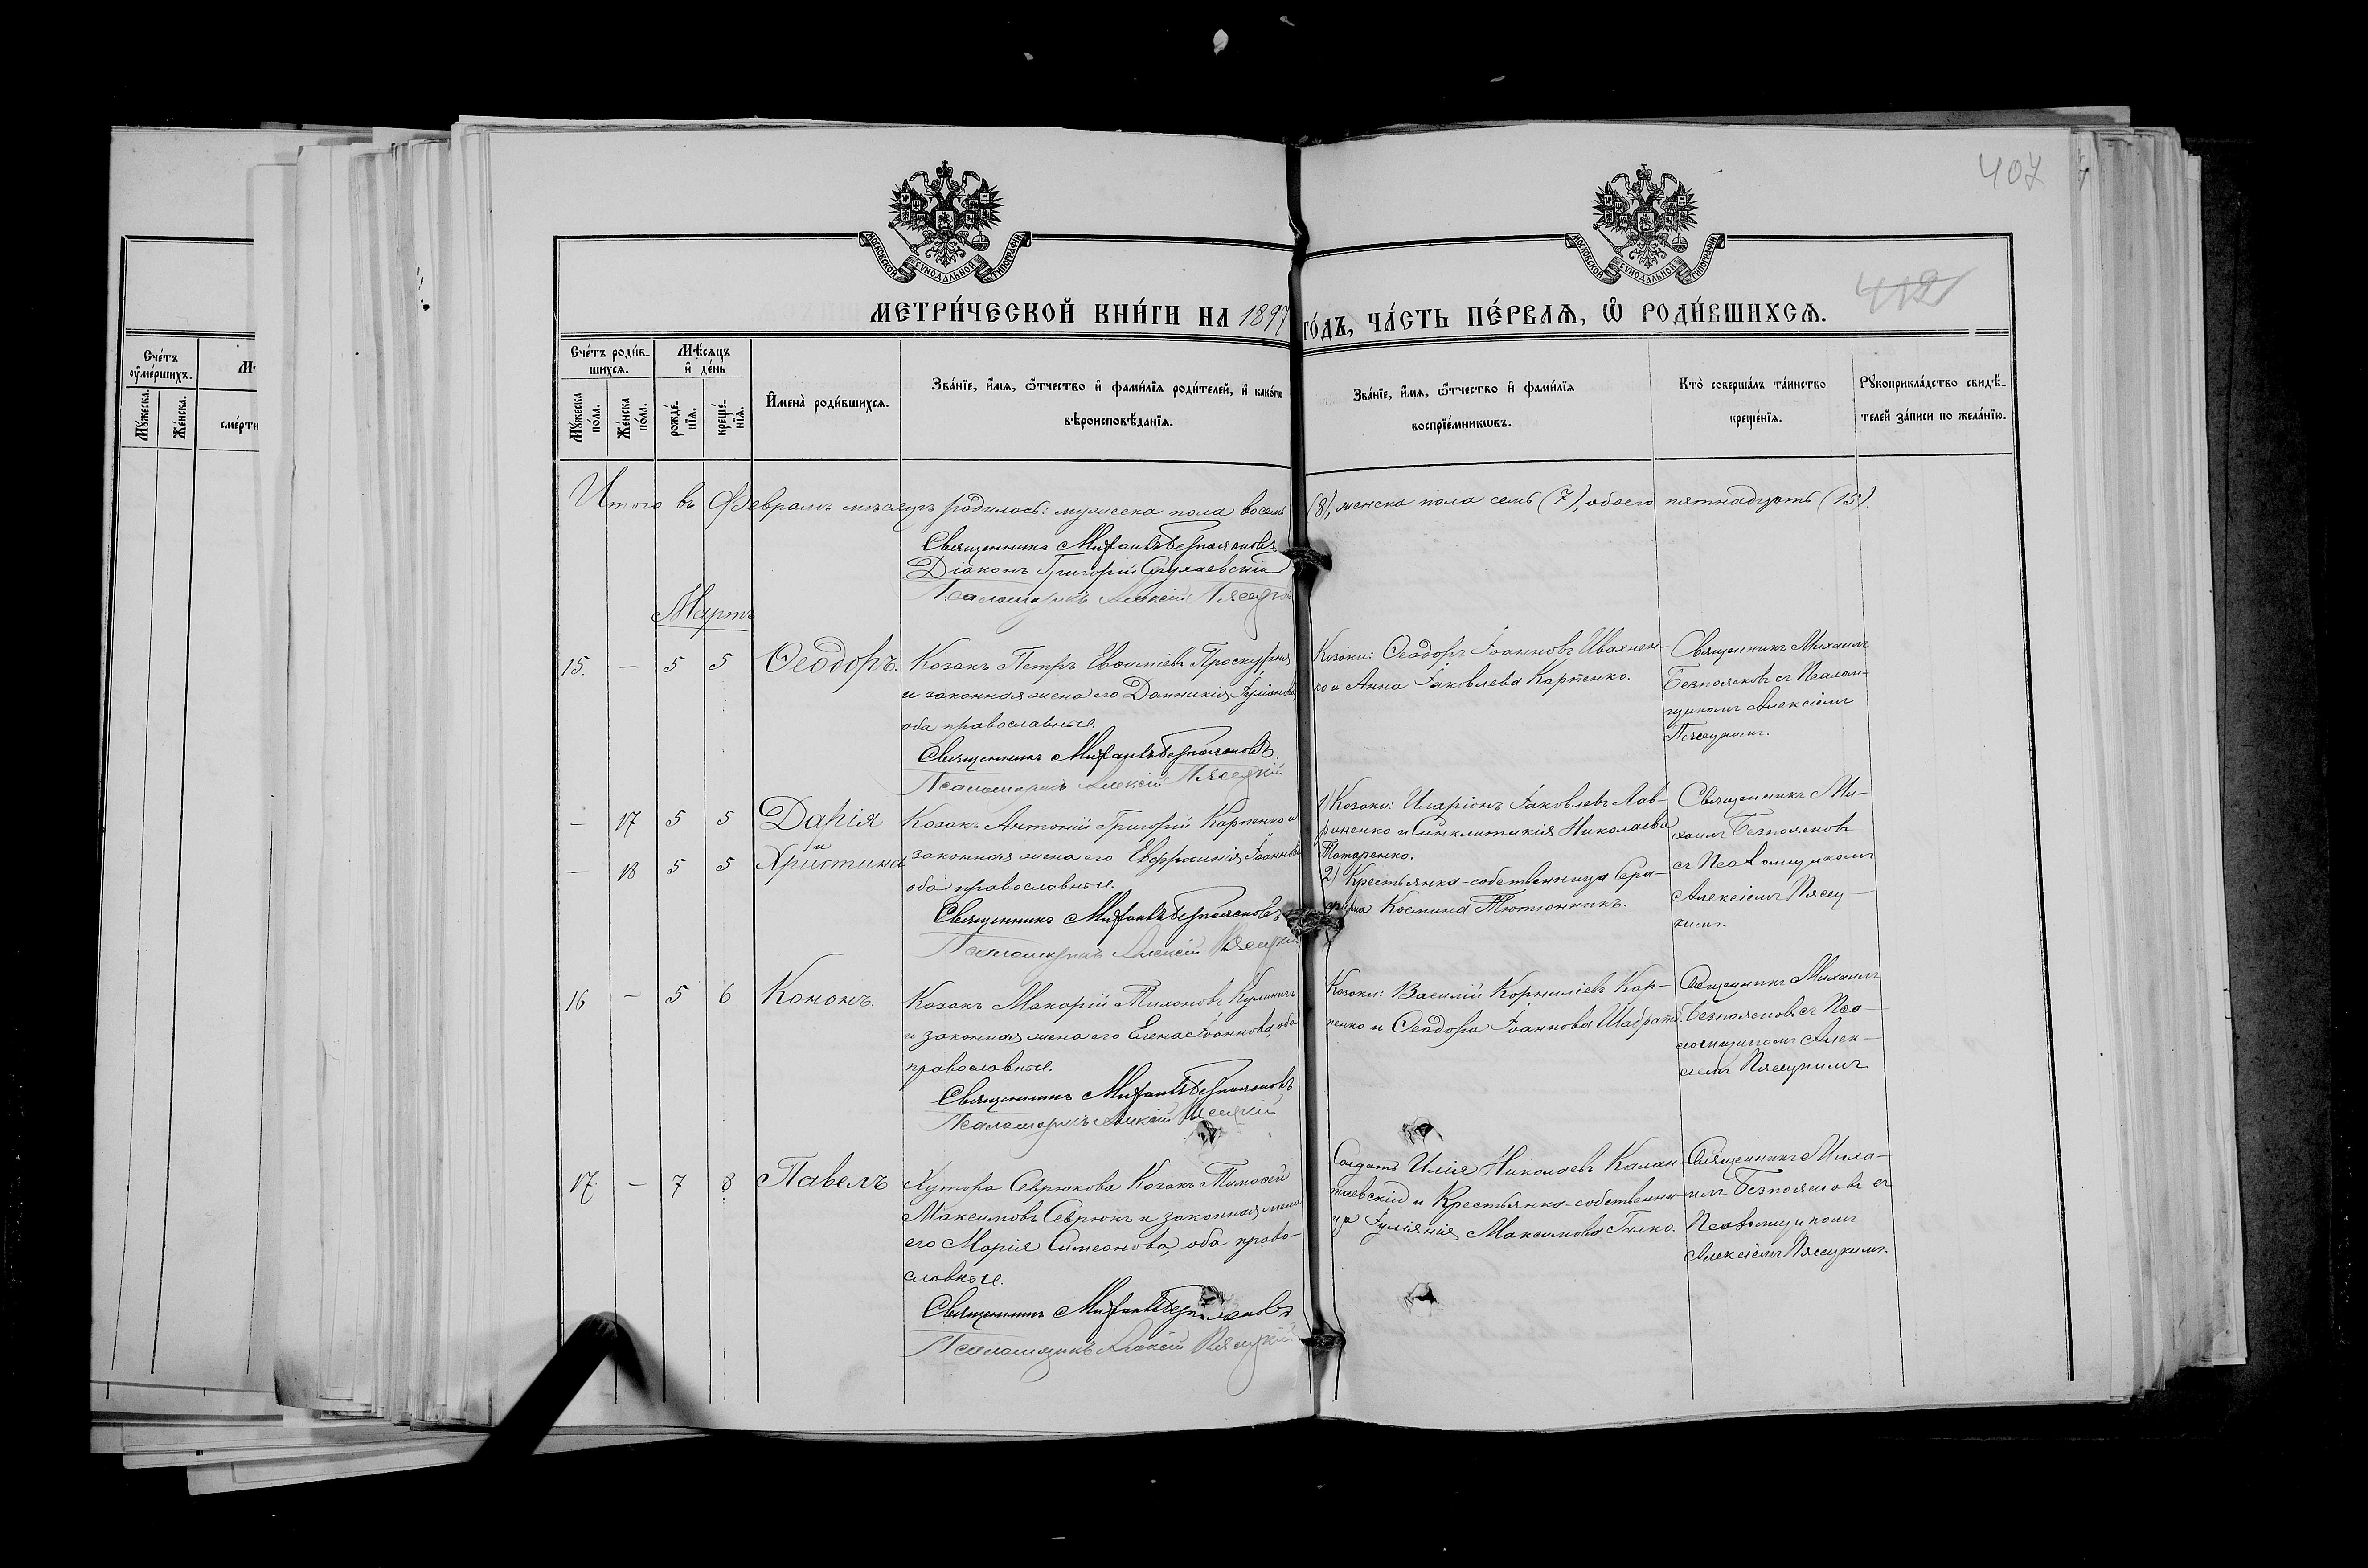 407
412
МОСКОВСКОЙ СѴНОДАЛЬНОЙ ТИПОГРАФІИ
МОСКОВСКОЙ СѴНОДАЛЬНОЙ ТИПОГРАФІИ
МЕТРИ́ЧЕСКОЙ КНИ́ГИ НА 1897 ГО́ДЪ, ЧА́СТЬ ПЕ́РВАѦ, Ѽ РОДИ́ВШИХСѦ.
Сче́тъ оу҆ме́ршихъ.
Мꙋ́жеска.
Же́нска.
М
сме́рти
Сче́тъ роди́в-
шихсѧ.
Мѣ́сѧцъ
и҆ де́нь
Мꙋ́жеска по́ла.
Же́нска по́ла.
рожде́-
нїѧ.
креще́-
нїѧ.
И҆мена̀ роди́вшихсѧ.
Зва́нїе, и҆́мѧ, ѻ҆́тчество и҆ фами́лїѧ роди́телей, и҆ како́гѡ
вѣроисповѣ́данїѧ.
Зва́нїе, и҆́мѧ, ѻ҆́тчество и҆ фами́лїѧ
воспрїе́мникѡвъ.
Кто̀ соверша́лъ та́инство
креще́нїѧ.
Рꙋкоприкла́дство свидѣ́-
телей за́писи по жела́нїю.
Итого въ Февралѣ мѣсяцѣ родилось: мужеска пола восемь (8), женска пола семь (7), обоего пятнадцать (15).
Священникъ Михаилъ Безпоясковъ
Діаконъ Григорій
Псаломщикъ Алексій Пясецкій
Мартъ
15. — 5 5 Ѳеодоръ.
Козакъ Петръ Евѳиміевъ Проскурня
и законная жена его Домникія Іуліанова,
оба православные.
Священникъ Михаилъ Безпоясковъ.
Псаломщикъ Алексій Пясецкій
Козаки: Ѳеодоръ Іоанновъ Ивахнен-
ко и Анна Іаковлева Карпенко.
Священникъ Михаилъ
Безпоясковъ съ Псалом-
щикомъ Алексіемъ
Пясецкимъ.
— 17 5 5 Дарія
и
— 18 5 5 Христина
Козакъ Антоній Григорій Карпенко и
законная жена его Евфросинія Іоаннова
оба православные.
Священникъ Михаилъ Безпоясковъ
Псаломщикъ Алексій Пясецкій
1) Козаки: Иларіонъ Іаковлевъ Лав-
риненко и Синклитикія Николаева
Татаренко.
2) Крестьянка-собственница Сера-
фима Космина Тютюнникъ.
Священникъ Ми-
хаилъ Безпоясковъ
съ Псаломщикомъ
Алексіемъ Пясец-
кимъ.
16 — 5 6 Кононъ.
Козакъ Макарій Тихоновъ Кулиничъ
и законная жена его Елена Іоаннова, оба
православные.
Священникъ Михаилъ Безпоясковъ
Псаломщикъ Алексій Пясецкій
Козаки: Василій Корниліевъ Кар-
пенко и Ѳеодора Іоаннова Шабратъ.
Священникъ Михаилъ
Безпоясковъ съ Пса-
ломщикомъ Алек-
сіемъ Пясецкимъ
17. — 7 8 Павелъ
Хутора Севрюкова Козакъ Тимоѳей
Максимовъ Севрюкъ и законная жена
его Марія Симеонова, оба право-
славные.
Священникъ Михаилъ Безпоясковъ
Псаломщикъ Алексій Пясецкій
Солдатъ Илія Николаевъ Калан-
таевскій и Крестьянка-собственни-
ца Іуліанія Максимова Галко.
Священникъ Миха-
илъ Безпоясковъ съ
Псаломщикомъ
Алексіемъ Пясецкимъ.